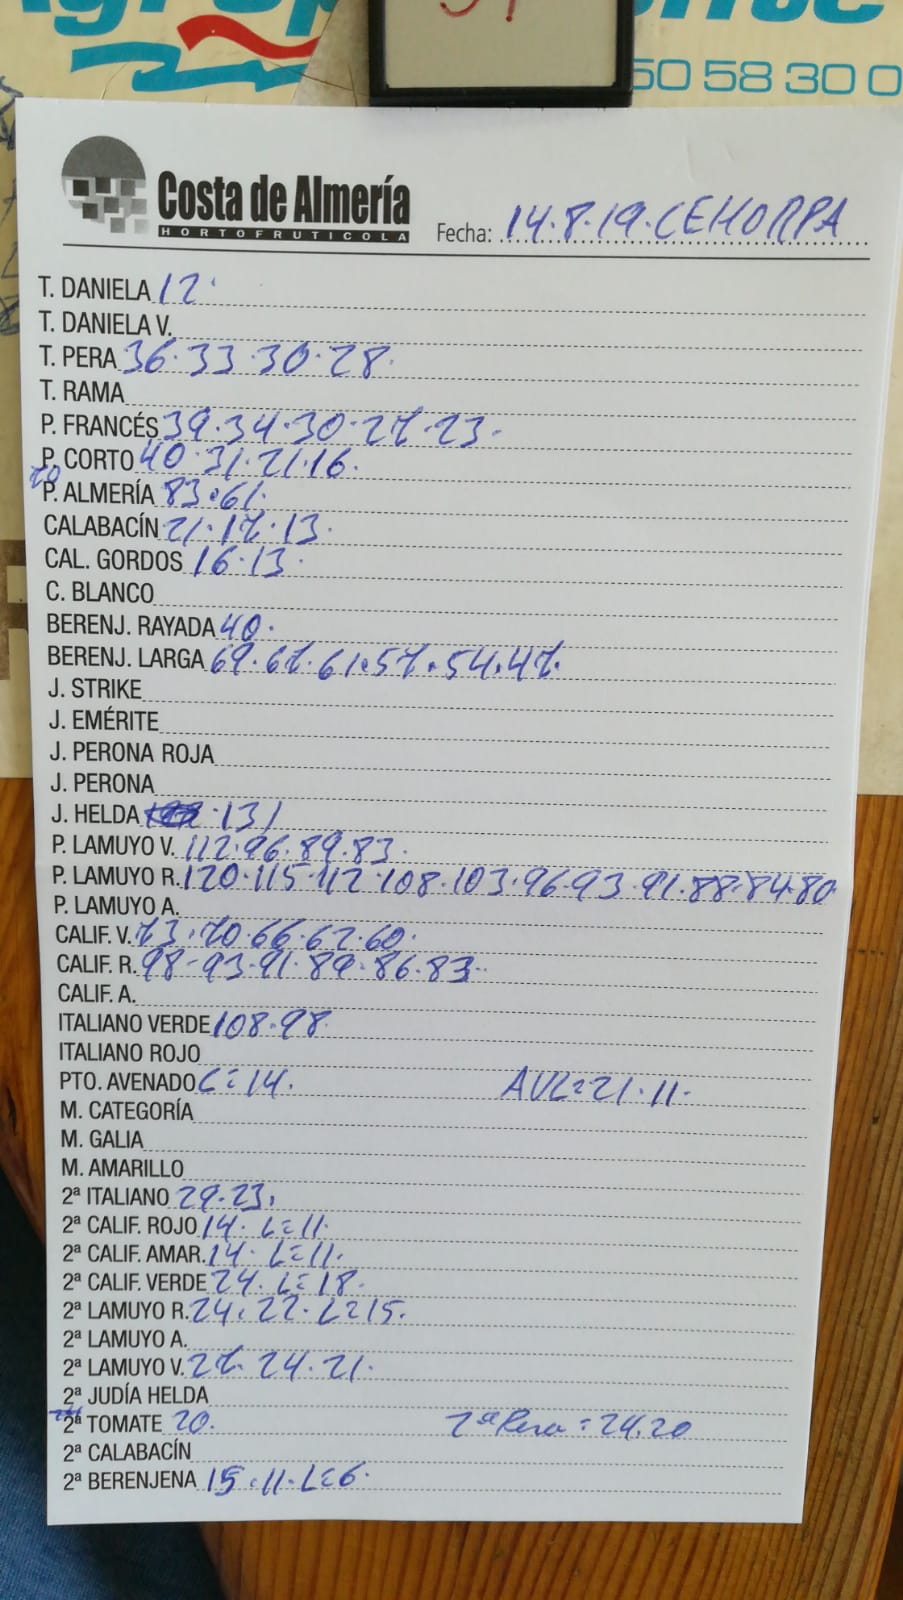 50 58 30 0
Costa de Almería
HORTOFRUTICOLA
Fecha: 14.8.19. CEHORPA
T. DANIELA 12.
T. DANIELA V.
T. PERA 36.33.30.28.
T. RAMA
P. FRANCÉS 39.34.30.27.23.
P. CORTO 40.31.21.16.
P. ALMERÍA 83.61.
CALABACÍN 21.17.13.
CAL. GORDOS 16.13.
C. BLANCO
BERENJ. RAYADA 40.
BERENJ. LARGA 69.67.61.57.54.47.
J. STRIKE
J. EMÉRITE
J. PERONA ROJA
J. PERONA
J. HELDA .131
P. LAMUYO V. 112.96.89.83.
P. LAMUYO R. 120.115.112.108.103.96.93.91.88.84.80
P. LAMUYO A.
CALIF. V. 73.70.66.62.60.
CALIF. R. 98-93.91.89.86.83.
CALIF. A.
ITALIANO VERDE 108.98
ITALIANO ROJO
PTO. AVENADO L=14. AVL=21.11.
M. CATEGORÍA
M. GALIA
M. AMARILLO
2ª ITALIANO 29.23.
2ª CALIF. ROJO 14. L=11.
2ª CALIF. AMAR. 14. L=11.
2ª CALIF. VERDE 24. L=18.
2ª LAMUYO R. 24.22. L=15.
2ª LAMUYO A.
2ª LAMUYO V. 27.24.21.
2ª JUDÍA HELDA
2ª TOMATE 20. 2ª Pera = 24.20
2ª CALABACÍN
2ª BERENJENA 15.11. L=6.